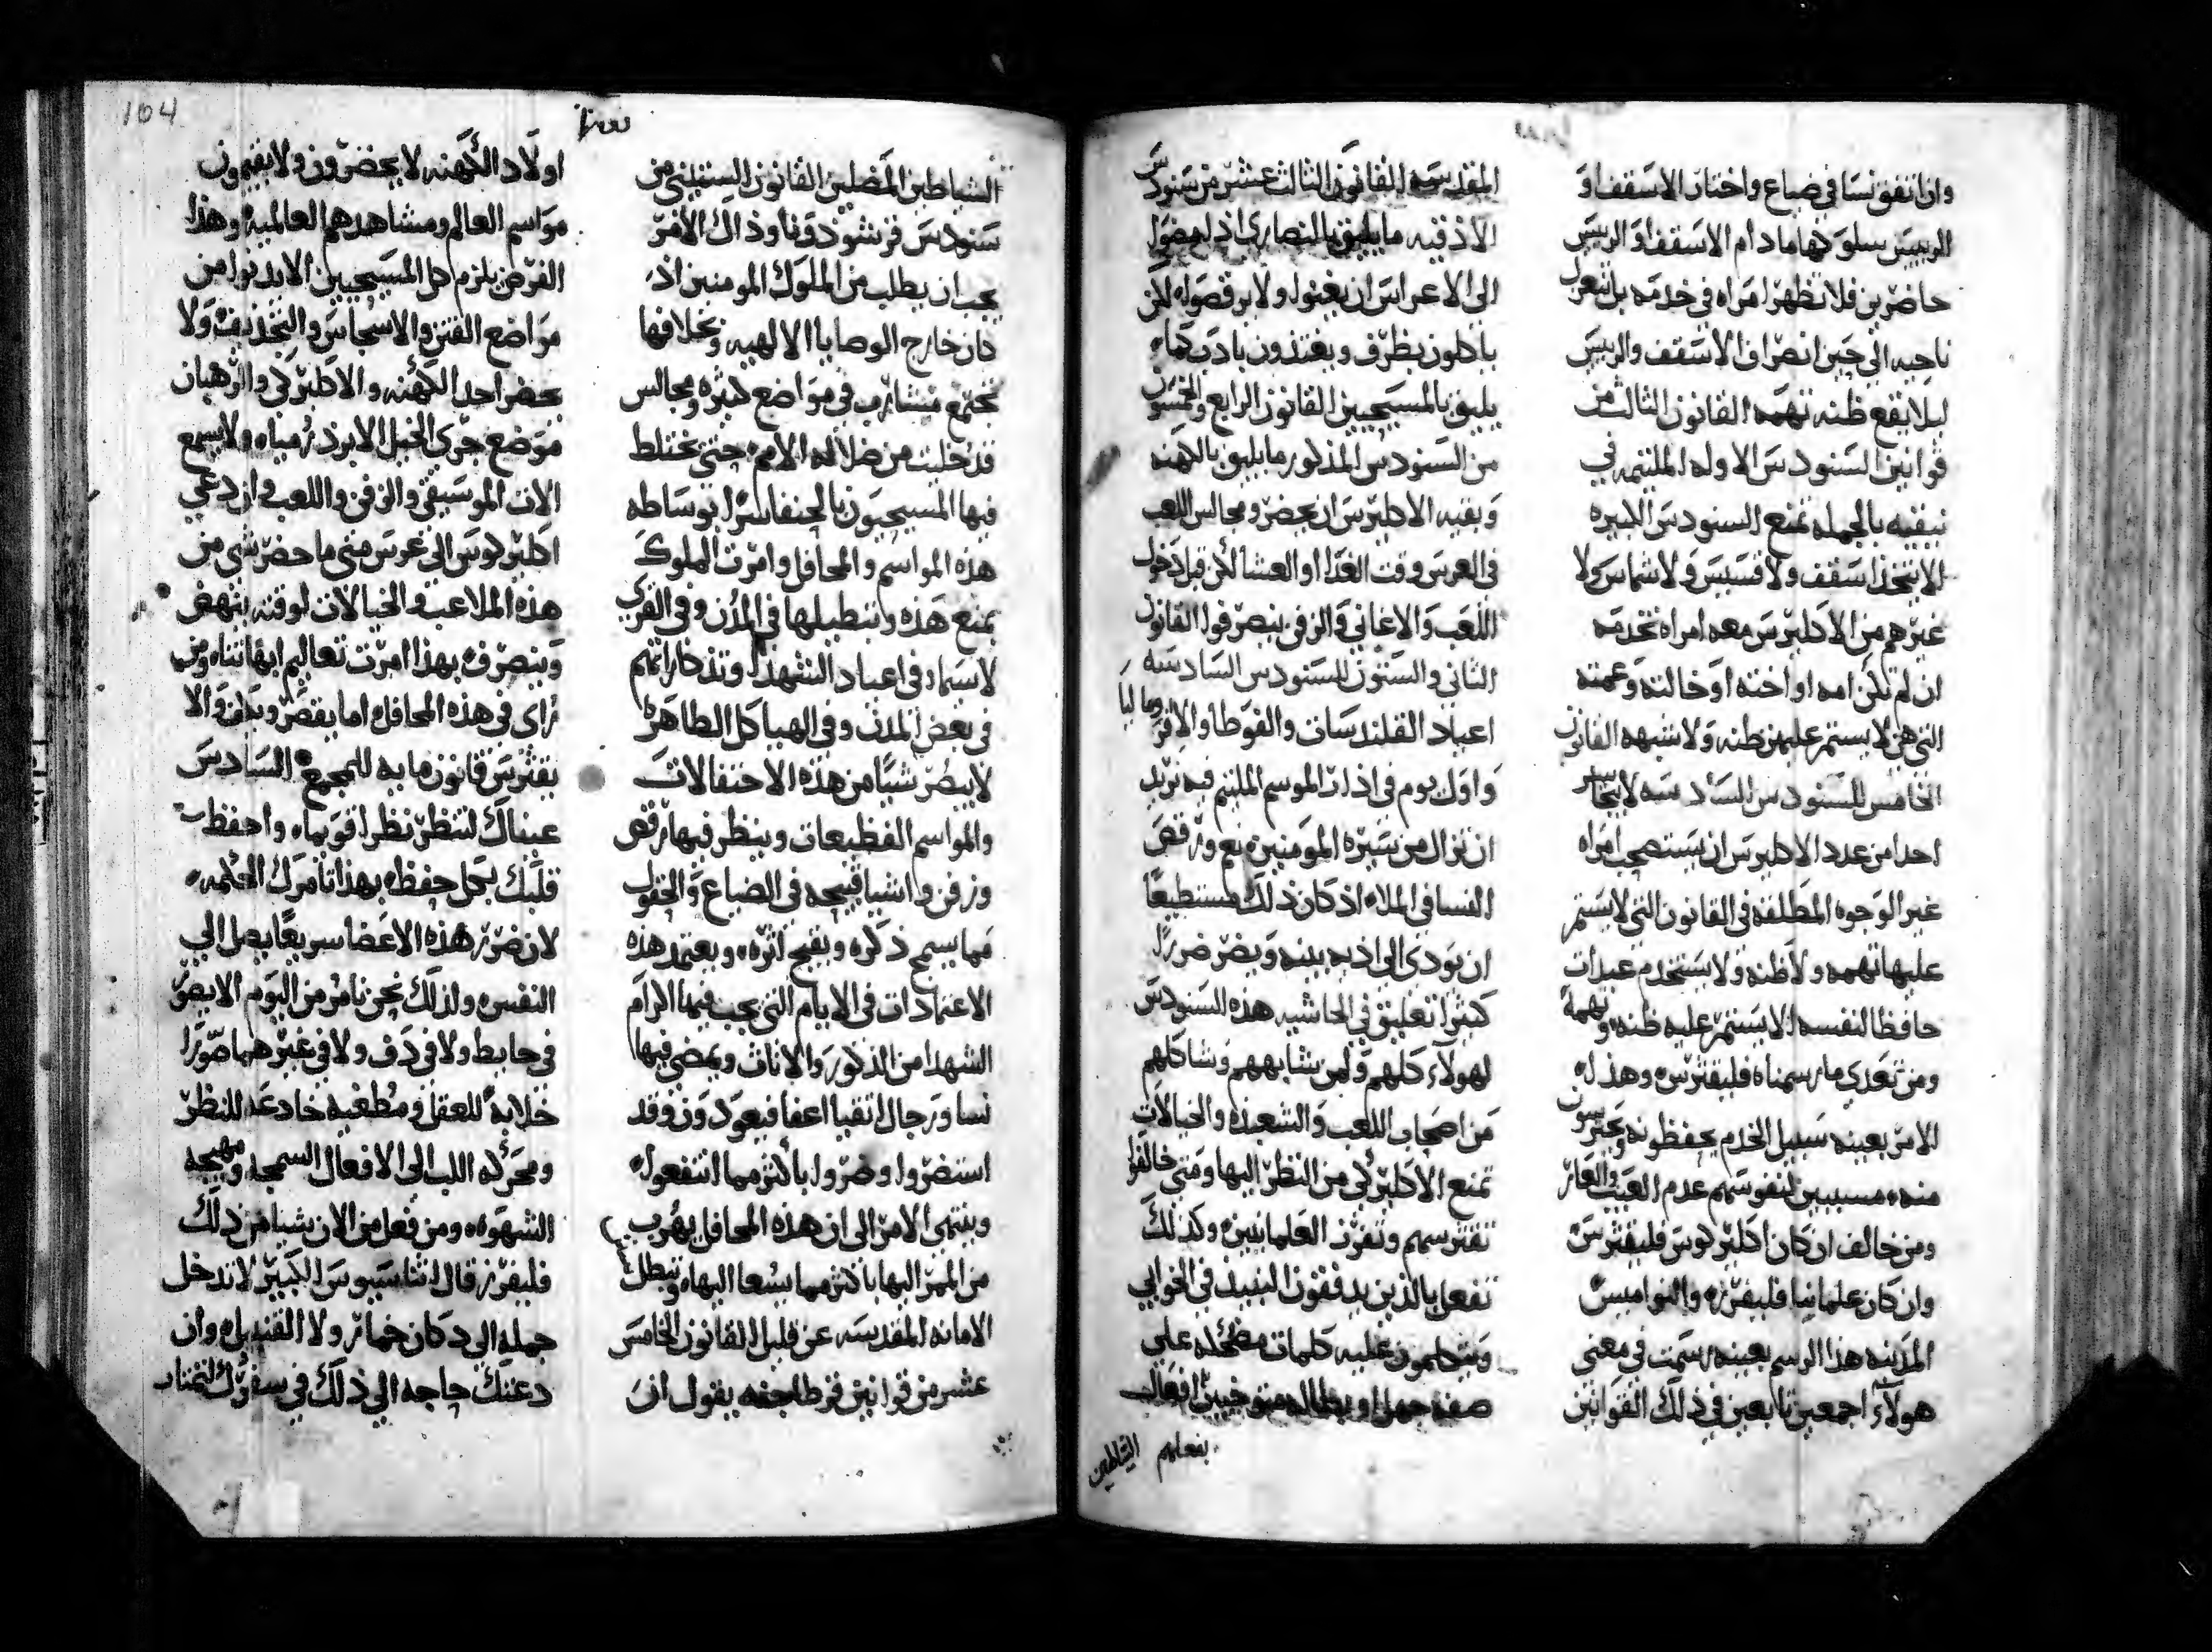 وان اتفق نسا في ضياع واختار الاسقف او
الرييس سلوكها مادام الاسقف او الرييس
حاضرين فلا تظهر امراه في خدمه بل تنعزل
ناحيه الي حين انصراف الاسقف والرييس
ليلا يقع ظنه تهمه القانون الثالث من
قوانين السنودس الاوله الملتيمه في
نيقيه بالجمله تمنع السنودس الكبيره
الا يتخذ اسقف ولا قسيس ولا شماس ولا
غيرهم من الاكليرس معه امراه تخدمه
ان لم تكن امه او اخته او خالته وعمته
التي هن لا يستمر عليهن ظنه ولا شبهه القانون
الخامس للسنودس السادسه لا يتخذ
احد من عدد الاكليرس ان يستصحب امراه
غير الوجوه المطلقه في القانون التي لا يستمر
عليها تهمه ولا ظنه ولا يستخدم عبدات
حافظا لنفسه لا يستمر عليه ظنه وتهمة
ومن تعدي ما رسمناه فليقترس وهذا له
الامر بعينه سبيل الخدم يحفظونه ويحترسون
منه مسببين لنفوسهم عدم العيب والعار
ومن خالف ان كان اكليركوس فليقترس
وان كان علمانيا فليفرز والنواميس
المدنيه هذا الرسم بعينه رسمت في معني
هولاء اجمعين تابعين في ذلك القوانين
المقدسه القانون الثالث عشر من سنودس
الاذقيه ما يليق بالنصاري اذا حضروا
الي الاعراس ان يغنوا ولا يرقصوا لكن
ياكلون بظرف ويغتذون بادب كما
يليق بالمسيحيين القانون الرابع والخمسون
من السنودس المذكور ما يليق بالكهنه
وبقيه الاكليرس ان يحضرو مجالس اللعب
في العرس وقت الغدا او العشا لكن قبل دخول
اللعب والاغاني والزفن ينصرفوا القانون
الثاني والستون للسنودس السادسه
اعياد القلندسات والفوطا والافر وماليا
واول يوم في اذار الموسم الملتيم فيه نريد
ان تزال من سيرة المومنين نعم ورقص
النسا في الملا اذ كان ذلك مستطيعا
ان يودي الي اذيه بينه ويضر ضررا
كثيرا تعليق في الحاشيه هذه السنودس
لهولاء كلهم ولمن شابههم وشاكلهم
من اصحاب اللعب والشعبذه والخيالات
تمنع الاكليركي من النظر اليها ومتي خالفوا
تقترسهم وتفرز العلمانيين وكذلك
تفعل بالذين يدفقون النبيذ في الخوابي
ويتكلمون عليه كلمات مضحكه علي
صفة جهل او بطاله متوخيين افعال
بفعلهم الشياطين
الشياطين المضلين القانون الستيني من
سنودس قرتشوذونا وذاك الامر
يجب ان يطلب من الملوك المومنين اذ
كان خارج الوصايا الالهيه وبخلافها
تجتمع مشارب في مواضع كثيره ومجالس
قد خليت من ضلاله الامم حتي يختلط
فيها المسيحيون بالحنفا سرا بوساطه
هذه المواسم والمحافل وامرت الملوك
بمنع هذه وتبطيلها في المدن وفي القري
لا سيما في اعياد الشهدا وتذكاراتهم
في بعض المدن وفي الهياكل الطاهره
لا يبصر شيا من هذه الاحتفالات
والمواسم الفظيعات وينظر فيها رقص
وزفن واشيا قبيحه في الضياع والحقول
مما يسمج ذكره ويقبح اثره ويعتمد هذه
الاعتمادات في الايام التي يجب فيها اكرام
الشهدا من الذكور والاناث ويمضي فيها
نسا ورجال اتقيا اعفا فيعودون وقد
استضروا وضروا باكثر مما انتفعوا
وينتهي الامر الي ان هذه المحافل يهرب
من الممر اليها باكثر مما يسعا اليها وتبطل
الامانه المقدسه عن قليل القانون الخامس
عشر من قوانين قرطاجنه يقول ان
اولاد الكهنه لا يحضرون ولا يقيمون
مواسم العالم ومشاهدهم العالميه وهذا
الفرض يلزم كل المسيحيين الا يدنوا من
مواضع الفتن والاسجاس والتجذيف ولا
يحضر احد الكهنه والاكليركي والرهبان
موضع جري الخيل الابرذرمياه ولا يسمع
الات الموسيقي والزفن واللعب وان دعي
اكليركوس الي عرس متي ما حضر شي من
هذه الملاعب والخيالات لوقته ينهض
وينصرف بهذا امرت تعاليم ابهاتنا ومن
راي في هذه المحافل اما يقصر ويكف والا
يقترس قانون مايه للمجمع السادس
عيناك لتنظر نظرا قويما واحفظ
قلبك بكل حفظ بهذا تامرك الحكمه
لان ضرر هذه الاعضا سريعا يصل الي
النفس ولذلك نحن نامر من اليوم الا يصور
في حايط ولا في دف ولا في غيرهما صورا
خلابة للعقل ومطغيه خادعه للنظر
ومحركه اللب الي الافعال السمجه ومهيجه
الشهوه ومن فعل من الان شيا من ذلك
فليفرز قال اثناسيوس الكبير لا تدخل
جمله الي دكان خمار ولا القنديل وان
دعتك حاجه الي ذلك في سفرك لتمتار
104